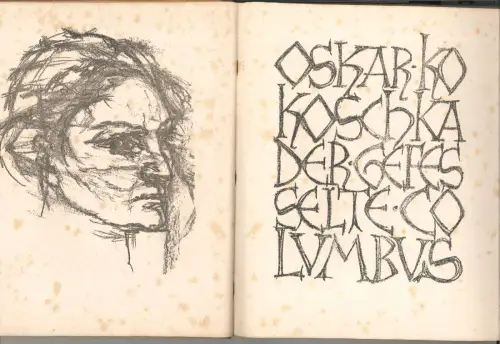 OSKAR·KO
KOSChKA
DER GEFES
SELTE·CO
LUMBUS